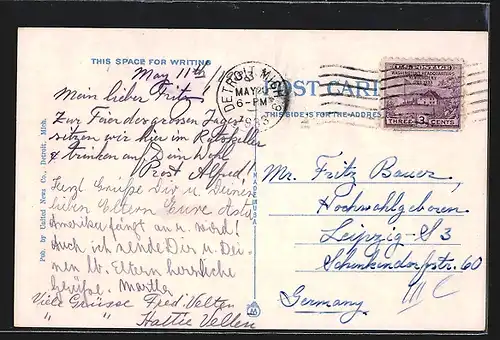 THIS SPACE FOR WRITING
May 11th / 1933
Mein lieber Fritz!
Zur Feier des grossen Tages
sitzen wir hier im Ratskeller
& trinken auf Dein Wohl
Prost Alfred!
Herzl Grüße Dir u Deinen
lieben Eltern Eure Asta
Amerika fängt an u. wird!
Auch ich sende Dir u Dei-
nen lb. Eltern herzliche
Grüße. Martha
Viele Grüsse Fred. Velten
" " Hattie Velten
Pub. by United News Co., Detroit, Mich.
MADE IN U.S.A.
DETROIT, MICH.
MAY
6-PM
POST CARD
THIS SIDE IS FOR THE ADDRESS
U.S. POSTAGE
WASHINGTON'S HEADQUARTERS
THREE 3 CENTS
Mr. Fritz Bauer,
Hochwohlgeboren
Leipzig - S3
Schenkendorfstr. 60
Germany. III C